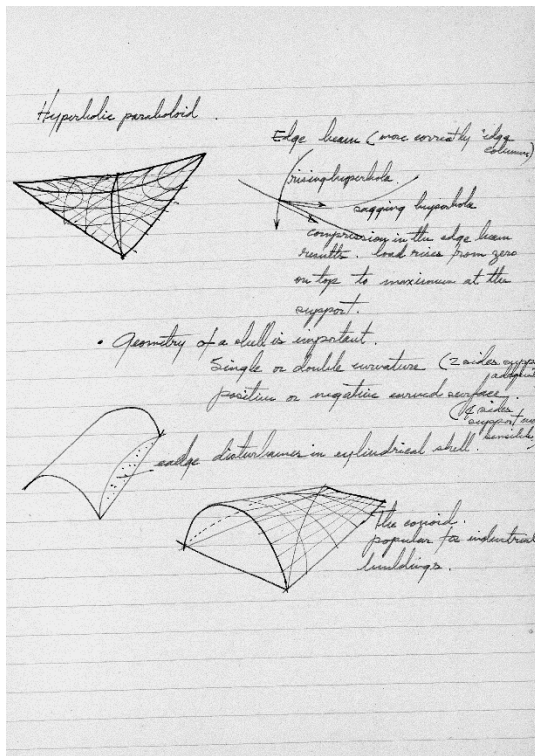 Hyperbolic paraboloid.
Edge beam (more correctly "edge
columns)
rising hyperbola.
sagging hyperbola
compression in the edge beam
results. load rises from zero
on top to maximum at the
support.
• Geometry of a shell is important.
Single or double curvature (2 sides
positive or negative curved surface
(4 sides
support
sensible)
edge disturbances in cylindrical shell.
The conoid.
popular for industrial
buildings.